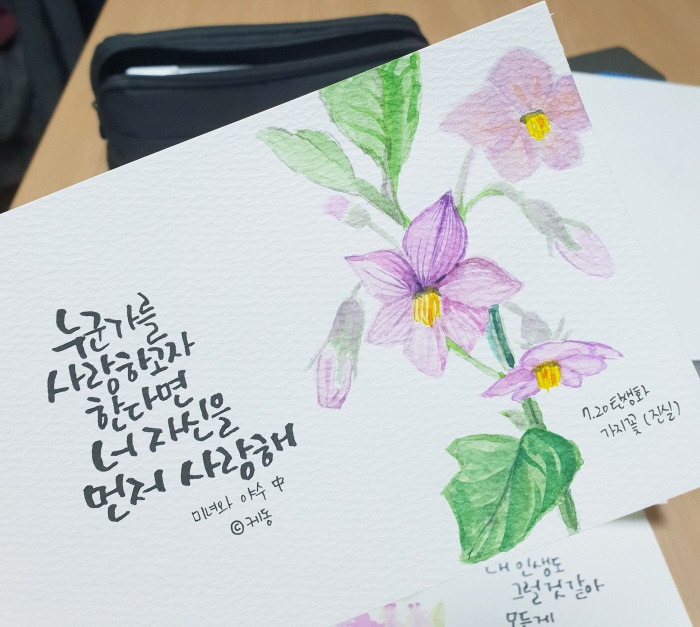 누군가를
사랑하고자
한다면
너 자신을
먼저 사랑해
미녀와 야수 中
©케동
7.20탄생화
가지꽃 (진실)
내 인생도
그럴것같아
모든게